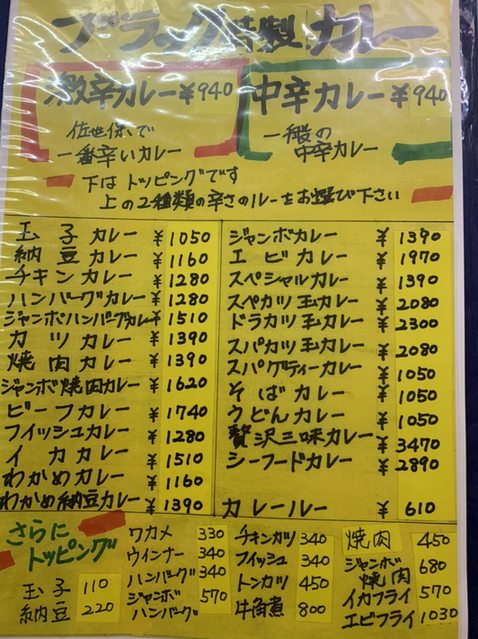 ブラック特製カレー
激辛カレー ¥940
佐世保で
一番辛いカレー
中辛カレー ¥940
一般の
中辛カレー
下はトッピングです
上の2種類の辛さのルーをお選び下さい
玉子カレー ¥1050
納豆カレー ¥1160
チキンカレー ¥1280
ハンバーグカレー ¥1280
ジャンボハンバーグカレー ¥1510
カツカレー ¥1390
焼肉カレー ¥1390
ジャンボ焼肉カレー ¥1620
ビーフカレー ¥1740
フィッシュカレー ¥1280
イカカレー ¥1510
わかめカレー ¥1160
わかめ納豆カレー ¥1390
ジャンボカレー ¥1390
エビカレー ¥1970
スペシャルカレー ¥1390
スペカツ玉カレー ¥2080
ドラカツ玉カレー ¥2300
スパカツ玉カレー ¥2080
スパゲティーカレー ¥1050
そばカレー ¥1050
うどんカレー ¥1050
贅沢三味カレー ¥3470
シーフードカレー ¥2890
カレールー ¥610
さらに
トッピング
玉子 110
納豆 220
ワカメ 330
ウインナー 340
ハンバーグ 340
ジャンボ
ハンバーグ 570
チキンカツ 340
フィッシュ 340
トンカツ 450
牛角煮 800
焼肉 450
ジャンボ
焼肉 680
イカフライ 570
エビフライ 1030